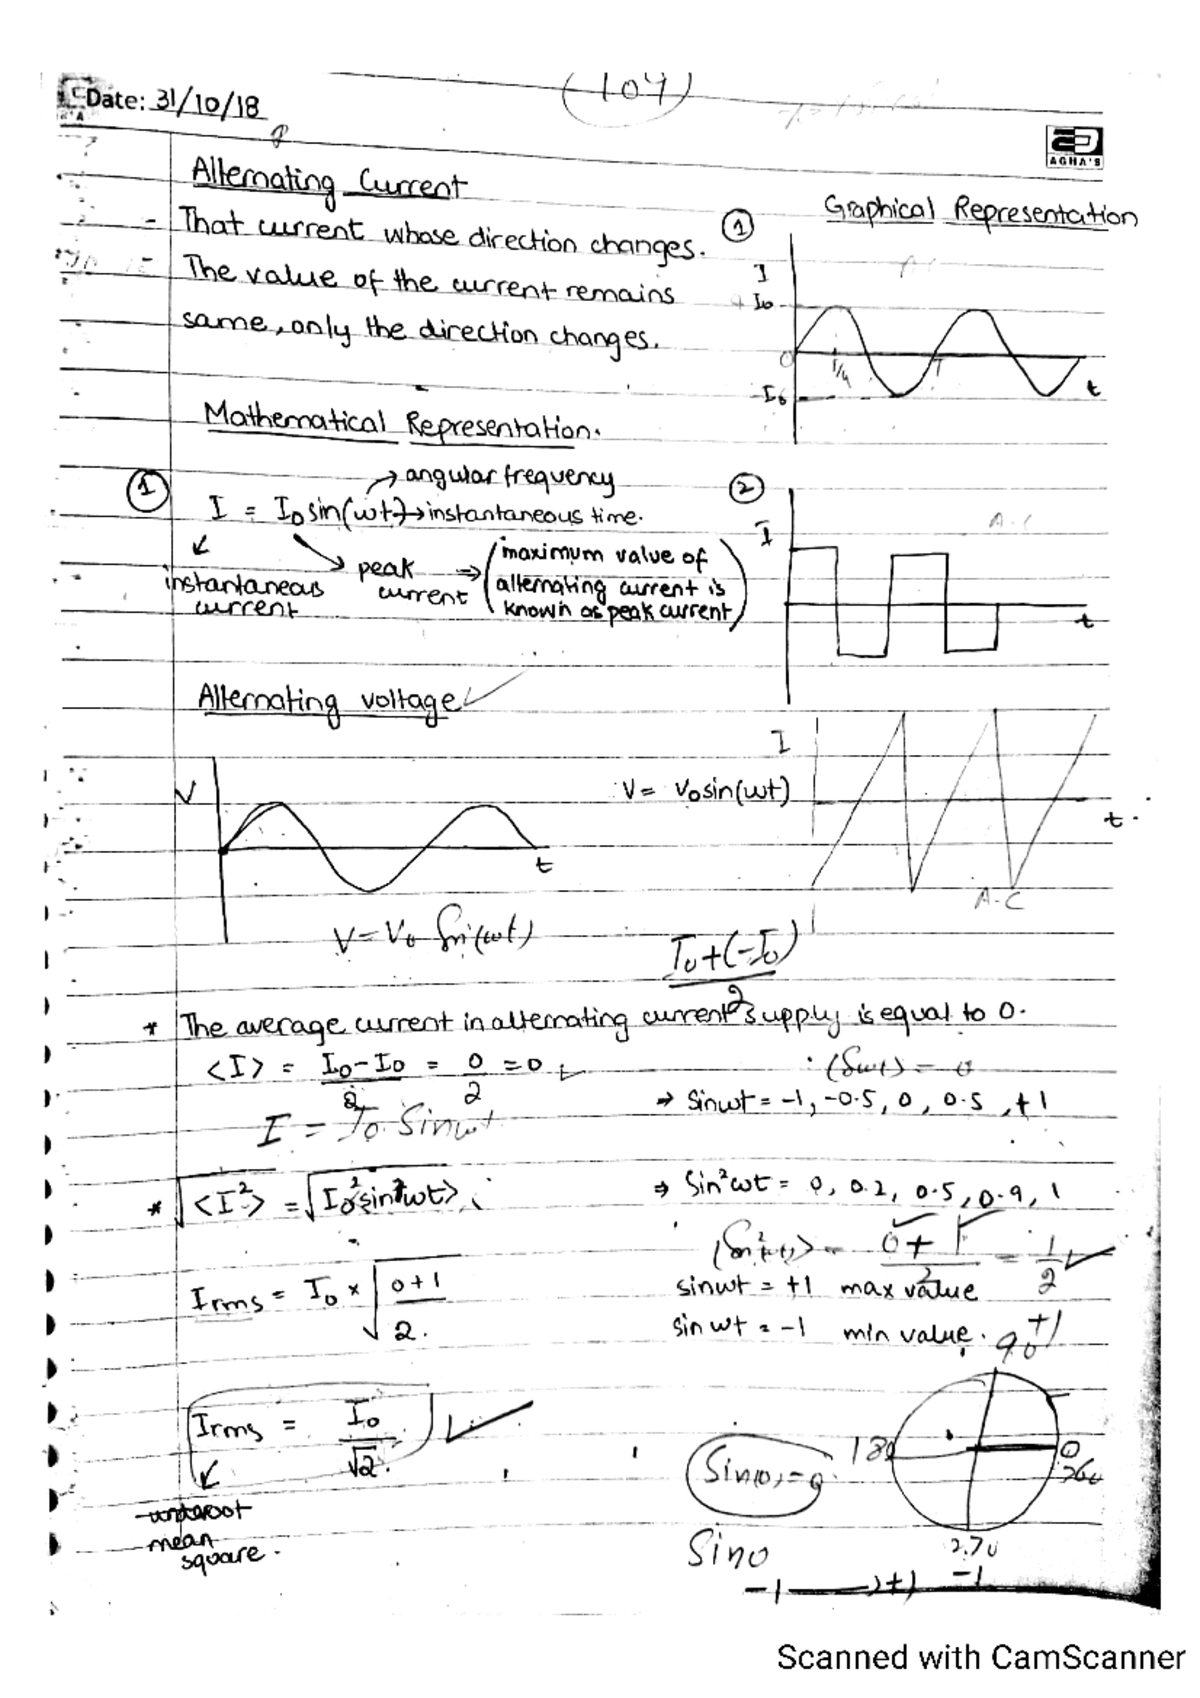 Date: 31/10/18
(104)
AGHA'S
Alternating Current
- That current whose direction changes.
- The value of the current remains
same, only the direction changes.
Graphical Representation
①
I
I₀
0
T/4
T
-I₀
t
Mathematical Representation.
①
→ angular frequency
I = I₀ sin(ωt) → instantaneous time.
instantaneous
current
peak
current
⇒ (maximum value of
alternating current is
known as peak current)
②
I
A.C
t
Alternating voltage
V
t
V = V₀ sin(ωt)
V = V₀ Sin(ωt)
I
t.
A-C
I₀+(-I₀)
2
* The average current in alternating current supply is equal to 0.
<I> = I₀-I₀ / 2 = 0 / 2 = 0
I = I₀ Sinωt
⇒ Sinωt = -1, -0.5, 0, 0.5, +1
* √<I²> = √I₀²<sin²ωt>
⇒ Sin²ωt = 0, 0.2, 0.5, 0.9, 1
<Sin²ωt> = 0+1 / 2 = 1/2
Irms = I₀ × √0+1 / 2.
sinωt = +1 max value
sin ωt = -1 min value.
+1
90
Irms = I₀ / √2.
underoot
mean
square.
Sin(0) = 0
180
0
360
270
-1
Sin0
-1 → +1
Scanned with CamScanner